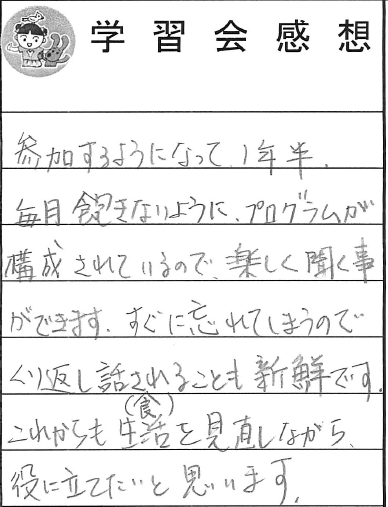 学習会感想
参加するようになって、1年半、
毎月飽きないように、プログラムが
構成されているので、楽しく聞く事
ができます。すぐに忘れてしまうので
くり返し話されることも新鮮です。
これからも生活(食)を見直しながら、
役に立てたいと思います。